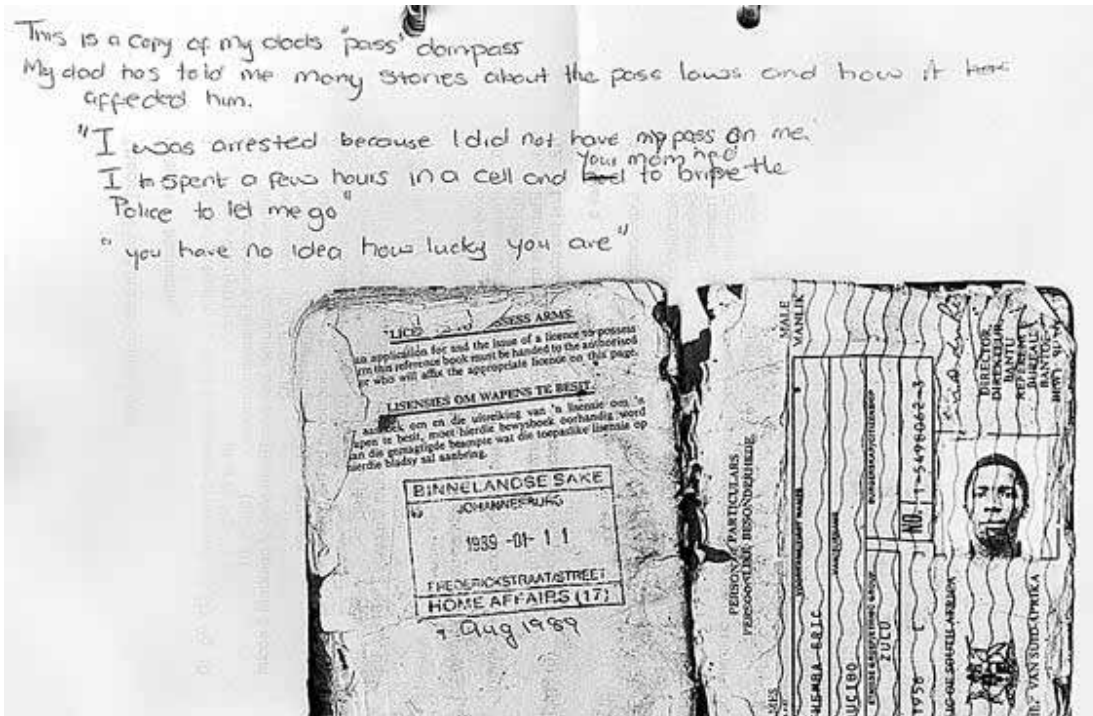 This is a copy of my dads "pass" dompass
My dad has told me many stories about the pass laws and how it has
affected him.
"I was arrested because I did not have my pass on me.
I spent a few hours in a cell and your mom had to bribe the
Police to let me go"
"you have no idea how lucky you are"
ESS ARMS
an application for and the issue of a licence to possess
this reference book must be handed to the authorised
who will affix the appropriate licence on this page.
LISENSIES OM WAPENS TE BESIT.
om en die uitreiking van 'n lisensie om 'n
te besit, moet hierdie bewysboek oorhandig word
die gemagtigde beampte wat die toepaslike lisensie op
hierdie bladsy sal aanbring.
BINNELANDSE SAKE
JOHANNESBURG
1989 -01- 11
FREDERICKSTRAAT/STREET
HOME AFFAIRS (17)
Aug 1989
PERSONAL PARTICULARS
PERSOONLIKE BESONDERHEDE
MALE
MANLIK
HEMBA ERIC
ZULU
1956
NO. 1-5498062-3
VAN SUID-AFRIKA
DIRECTOR,
DIREKTEUR,
BANTU
REFEREN
BUREAU
BANTOE